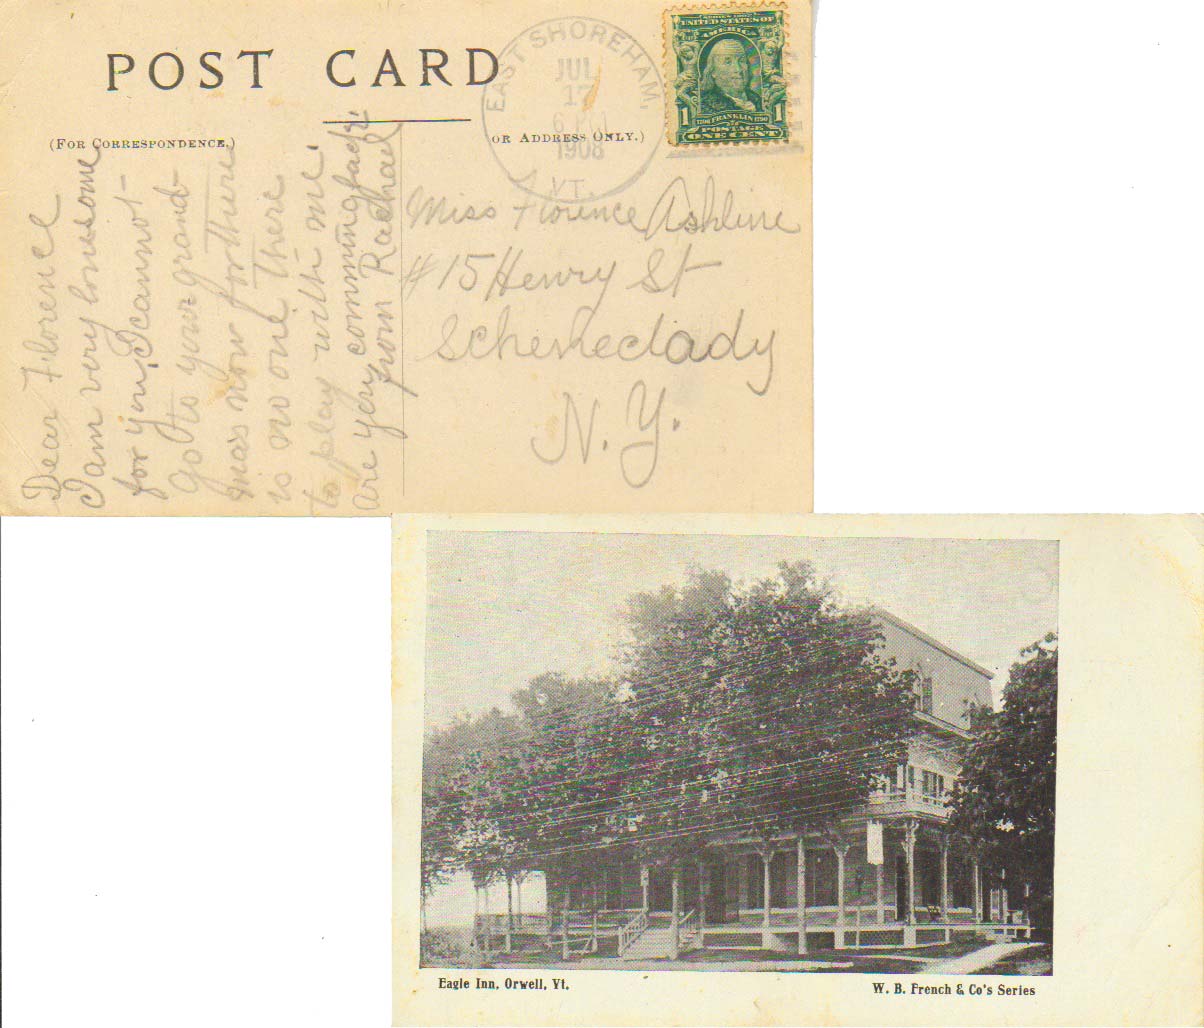 POST CARD
(FOR CORRESPONDENCE.)
OR ADDRESS ONLY.)
EAST SHOREHAM,
JUL
17
6 PM
1908
VT.
SERIES 1902
UNITED STATES OF
AMERICA
1 FRANKLIN 1
POSTAGE
ONE CENT
Dear Florence
I am very lonesome
for you, I cannot
go to your grand-
mas now for there
is no one there
to play with me.
are yery comming back.
from Rachael
Miss Florence Ashline
#15 Henry St
Scheneclady
N. Y.
Eagle Inn, Orwell, Vt.
W. B. French & Co's Series